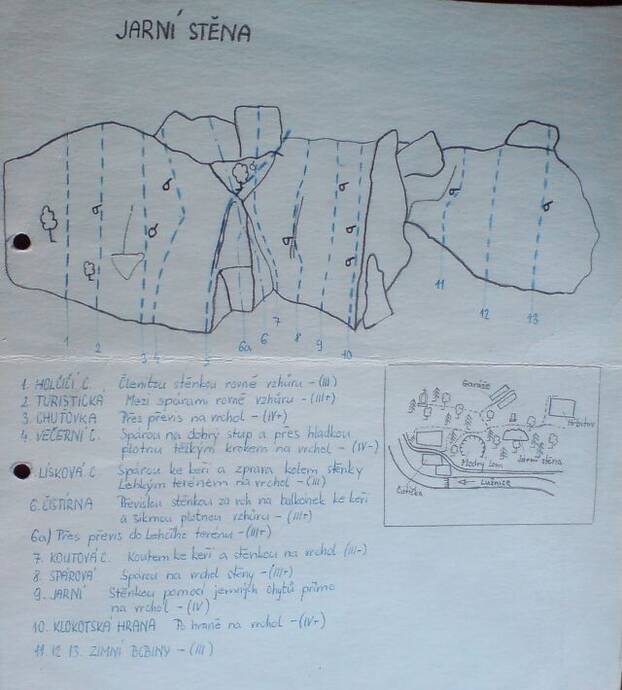 JARNÍ STĚNA
1 2 3 4 5 6a 6 7 8 9 10 11 12 13
1. HOLČIČÍ C. Členitou stěnkou rovně vzhůru - (III)
2 TURISTIČKA Mezi spárami rovně vzhůru - (III+)
3. CHUŤOVKA Přes převis na vrchol - (IV+)
4. VEČERNÍ C. Spárou na dobrý stup a přes hladkou
plotnu těžkým krokem na vrchol - (IV-)
LÍSKOVÁ C Spárou ke keři a zprava kolem stěnky
Lehkým terénem na vrchol - (III)
6. ČISTÍRNA Převislou stěnkou za roh na balkonek ke keři
a šikmou plotnou vzhůru - (III+)
6a) Přes převis do lehčího terénu - (III+)
7. KOUTOVÁ C. Koutem ke keři a stěnkou na vrchol (III-)
8 SPÁROVÁ Spárou na vrchol stěny - (III+)
9. JARNÍ Stěnkou pomocí jemných chytů přímo
na vrchol - (IV)
10. KLOKOTSKÁ HRANA Po hraně na vrchol - (IV+)
11. 12 13. ZIMNÍ BOBINY - (III)
Garáže
Hřbitov
Modrý lom
Jarní stěna
Čistička
Lužnice